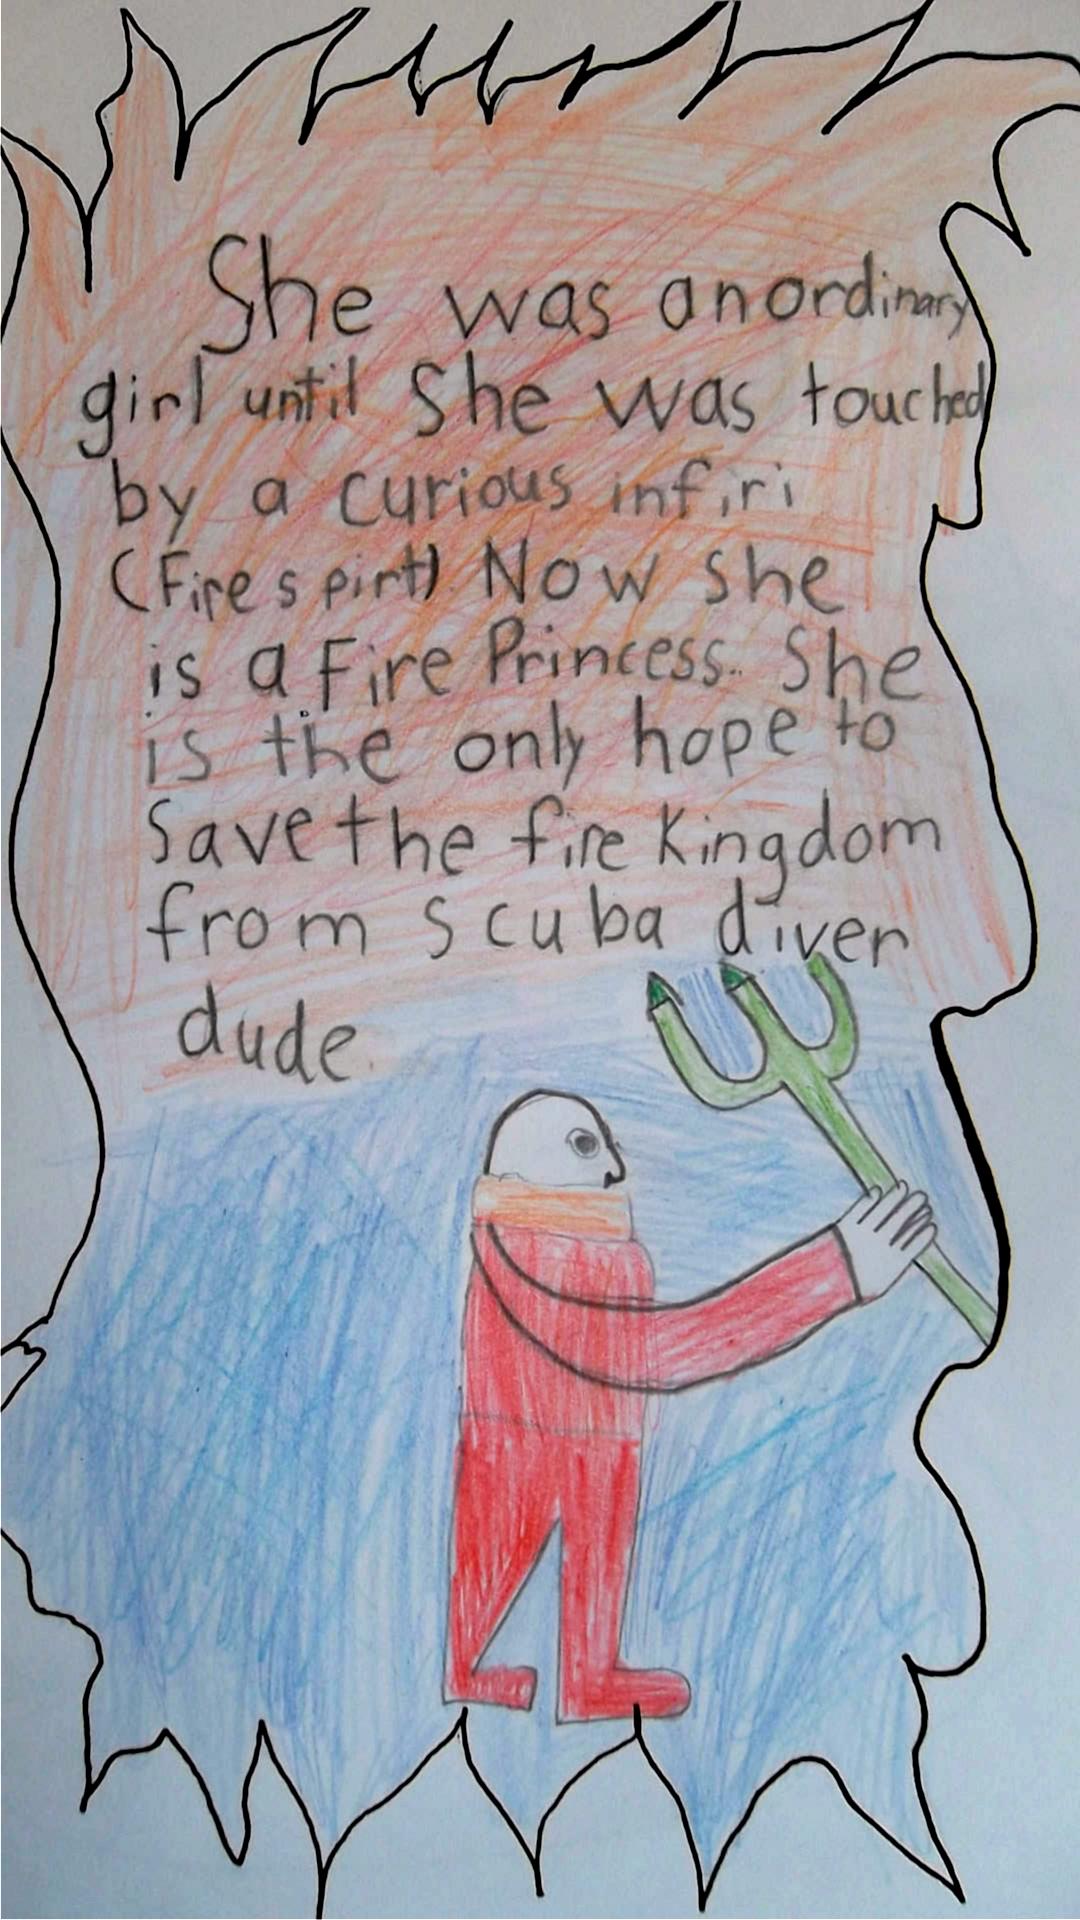 She was an ordinary
girl until She was touched
by a curious infiri
(Fire spirt) Now she
is a Fire Princess.. She
is the only hope to
Save the fire Kingdom
from scuba diver
dude.